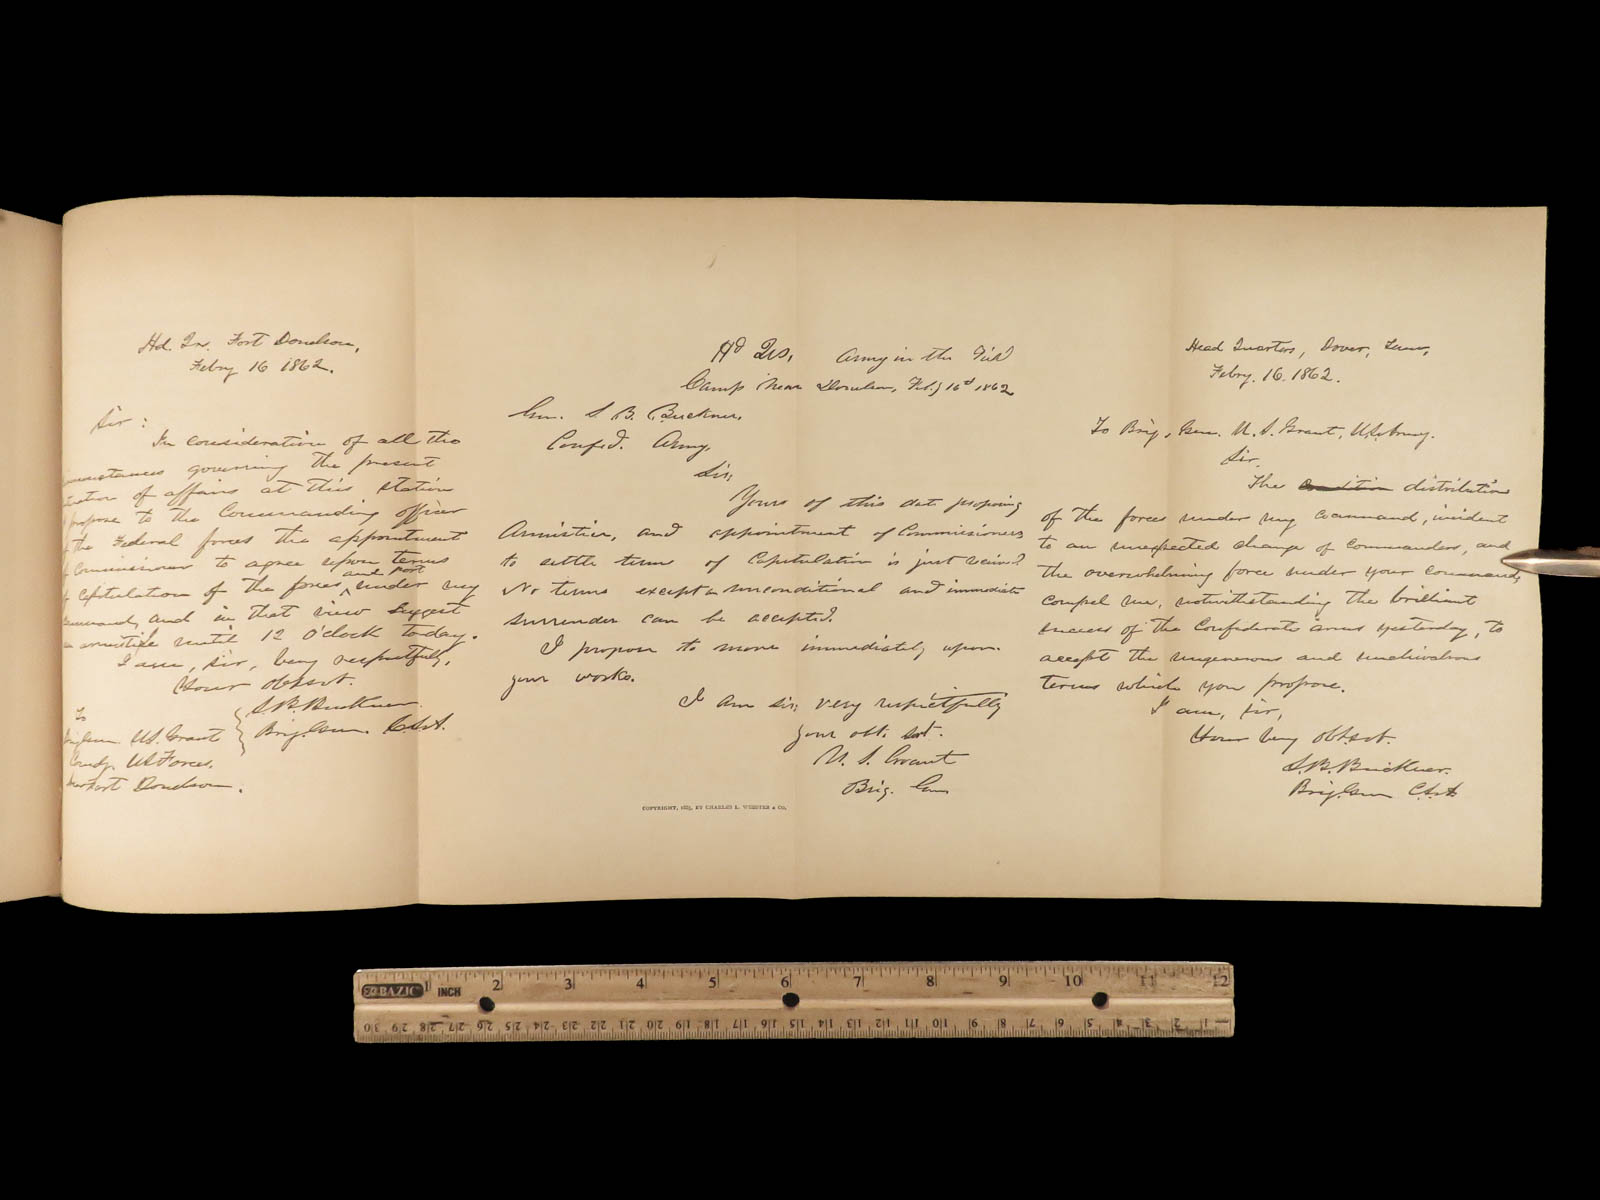 Hd. Qrs. Fort Donelson,
Febry 16 1862.
Sir:
In consideration of all the
circumstances governing the present
situation of affairs at this station
I propose to the Commanding officer
of the Federal forces the appointment
of Commissioners to agree upon terms
of capitulation of the forces and post under my
command, and in that view suggest
an armistice until 12 o'clock today.
I am, sir, very respectfully,
Your obt. svt.
S.B. Buckner.
Brig. Gen. C.S.A.
To
Brig. Gen. U.S. Grant
Comdg. US Forces.
Near Fort Donelson.
Hd Qrs, Army in the Field
Camp Near Donelson, Feby 16th 1862
Gen. S. B. Buckner,
Confed. Army,
Sir;
Yours of this date proposing
Armistice, and appointment of Commissioners
to settle terms of Capitulation is just received.
No terms except an unconditional and immediate
surrender can be accepted.
I propose to move immediately upon
your works.
I am Sir; very respectfully
your obt. svt.
U. S. Grant
Brig. Gen
COPYRIGHT, 1885, BY CHARLES L. WEBSTER & CO.
Head Quarters, Dover, Tenn,
Febry. 16. 1862.
To Brig, Gen. U. S. Grant, U.S. Army.
Sir,
The condition distribution
of the forces under my command, incident
to an unexpected change of commanders, and
the overwhelming force under your command,
compel me, notwithstanding the brilliant
success of the Confederate arms yesterday, to
accept the ungenerous and unchivalrous
terms which you propose.
I am, sir,
Your very obt. svt.
S.B. Buckner.
Brig. Gen C.S.A
BAZIC 1 INCH 2 3 4 5 6 7 8 9 10 11 12
30 29 28 27 26 25 24 23 22 21 20 19 18 17 16 15 14 13 12 11 10 9 8 7 6 5 4 3 2 1